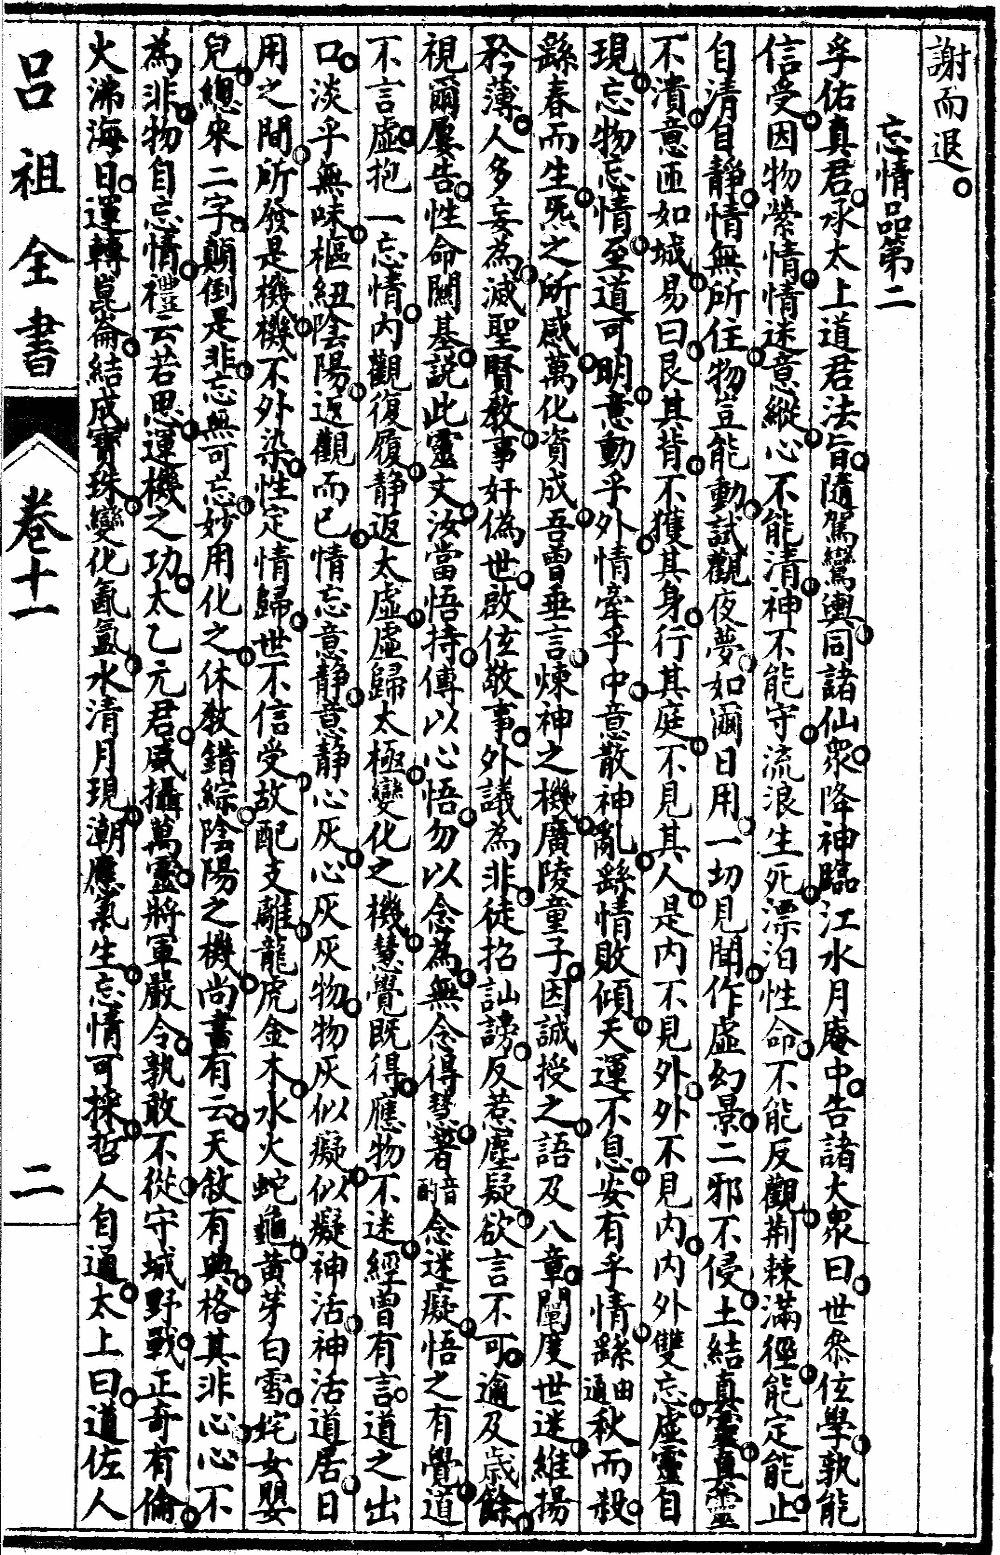 謝而退
忘情品第二
孚佑真君承太上道君法旨隨駕鸞輿同諸仙衆降神臨江水月庵中告諸大衆曰世叅伭學孰能
信受因物縈情情迷意縱心不能清神不能守流浪生死漂泊性命不能反觀荆棘滿徑能定能止
自清自靜情無所住物豈能動試觀夜夢如滴日用一切見聞作虛幻景二邪不侵土結真靈真靈
不潰意匝如城易曰艮其背不獲其身行其庭不見其人是内不見外外不見内内外雙忘虛靈自
現忘物忘情至道可明意動乎外情牽乎中意散神亂繇情敗傾天運不息安有乎情繇通由秋而殺
繇春而生炁之所感萬化資成吾曾垂言煉神之機廣陵童子因誠授之語及八章闡度世迷維揚
矜薄人多妄為滅聖賢敎事奸偽世啟伭敬事外議為非徒招訕謗反惹塵疑欲言不可逾及歲餘
視爾屢告性命關基説此靈文汝當悟持傳以心悟勿以念為無念得慧著音酌念迷癡悟之有覺道
不言虛抱一忘情内觀復履静返太虛虛歸太極變化之機慧覺既得應物不迷經曽有言道之出
口淡乎無味樞紐陰陽返觀而已情忘意静意静心灰心灰灰物物灰似癡似癡神活神活道居日
用之間所發是機機不外染性定情歸世不信受故配支離龍虎金木水火蛇龜黄芽白雪姹女嬰
兒總來二字顛倒是非忘無可忘妙用化之休敎錯綜陰陽之機尚書有云天敘有典格其非心心不
為非物自忘情禮云若思運機之功太乙元君威攝萬靈將軍嚴令孰敢不從守城野戰正奇有倫
火沸海日運轉崑崙結成寶珠變化氤氳水清月現潮應氣生忘情可採哲人自通太上曰道佐人
呂祖全書
卷十一
二